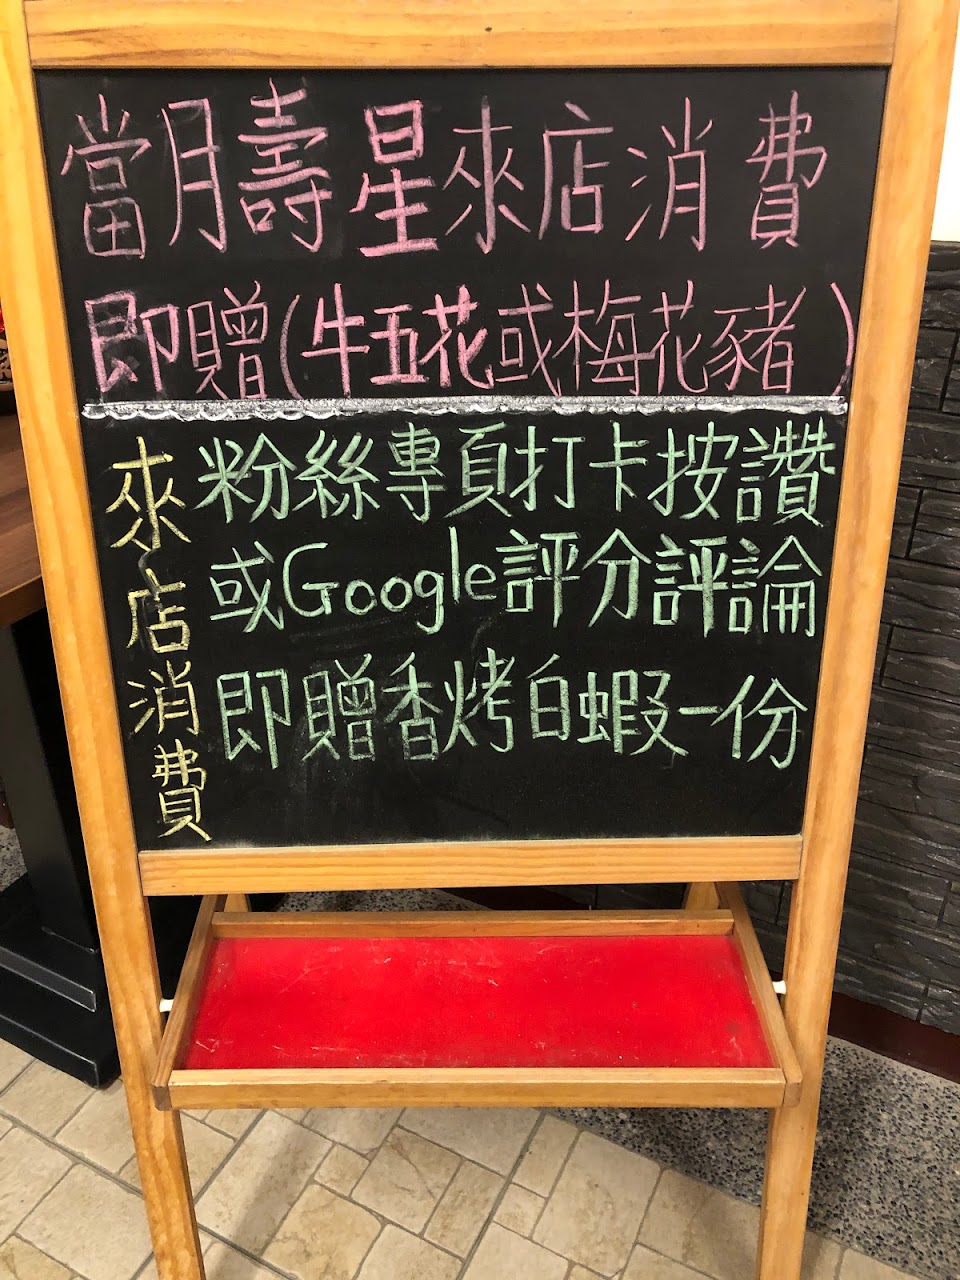 當月壽星來店消費
即贈(牛五花或梅花豬)
來店消費
粉絲專頁打卡按讚
或Google評分評論
即贈香烤白蝦一份